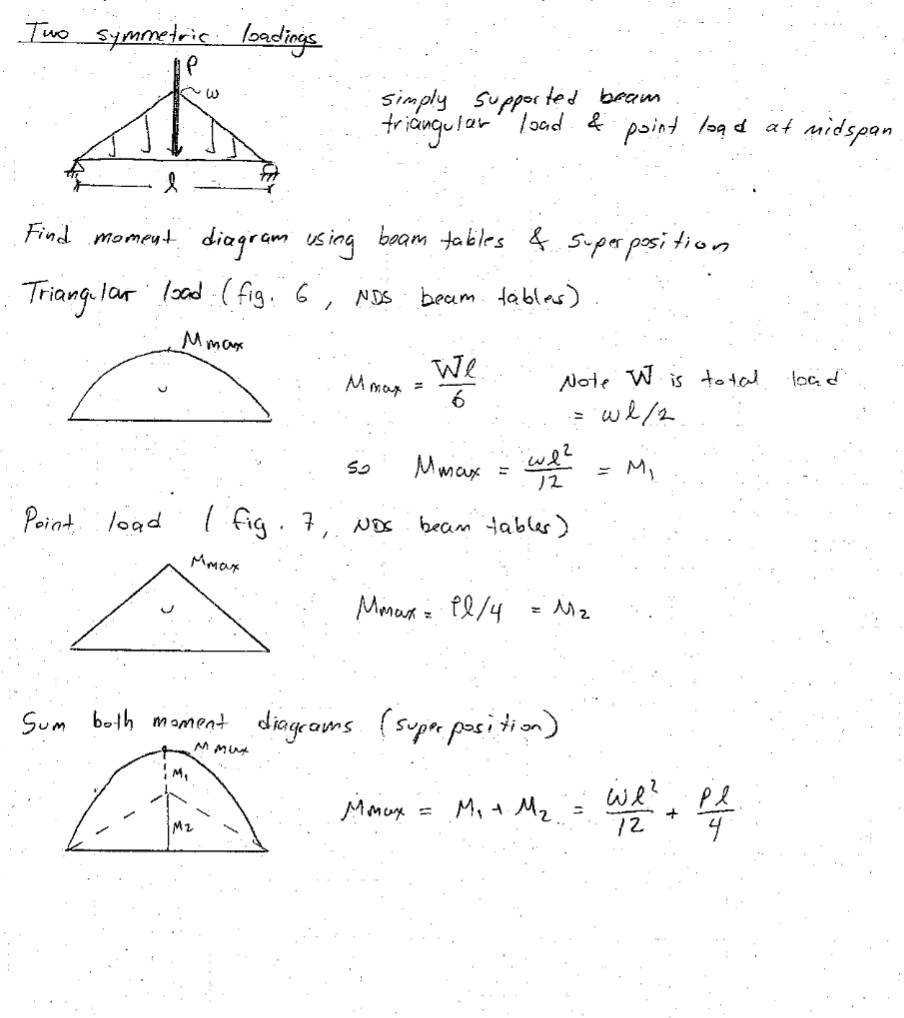 Two symmetric loadings
P
w
simply supported beam
triangular load & point load at midspan
l
Find moment diagram using beam tables & superposition
Triangular load (fig. 6, NDS beam tables)
Mmax
Mmax = Wl/6
Note W is total load
= wl/2
so Mmax = wl²/12 = M₁
Point load (fig. 7, NDS beam tables)
Mmax
Mmax = Pl/4 = M₂
Sum both moment diagrams (superposition)
Mmax
M₁
M₂
Mmax = M₁ + M₂ = wl²/12 + Pl/4